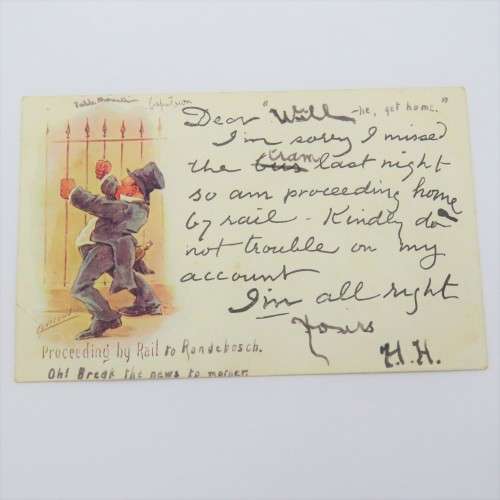 Table Mountain Capetown
Dear "Will -he, get home."
I'm sorry I missed
the bus tram last night
so am proceeding home
by rail - Kindly do
not trouble on my
account
I'm all right
Yours
H.H.
Proceeding by Rail to Rondebosch.
Oh! Break the news to mother.